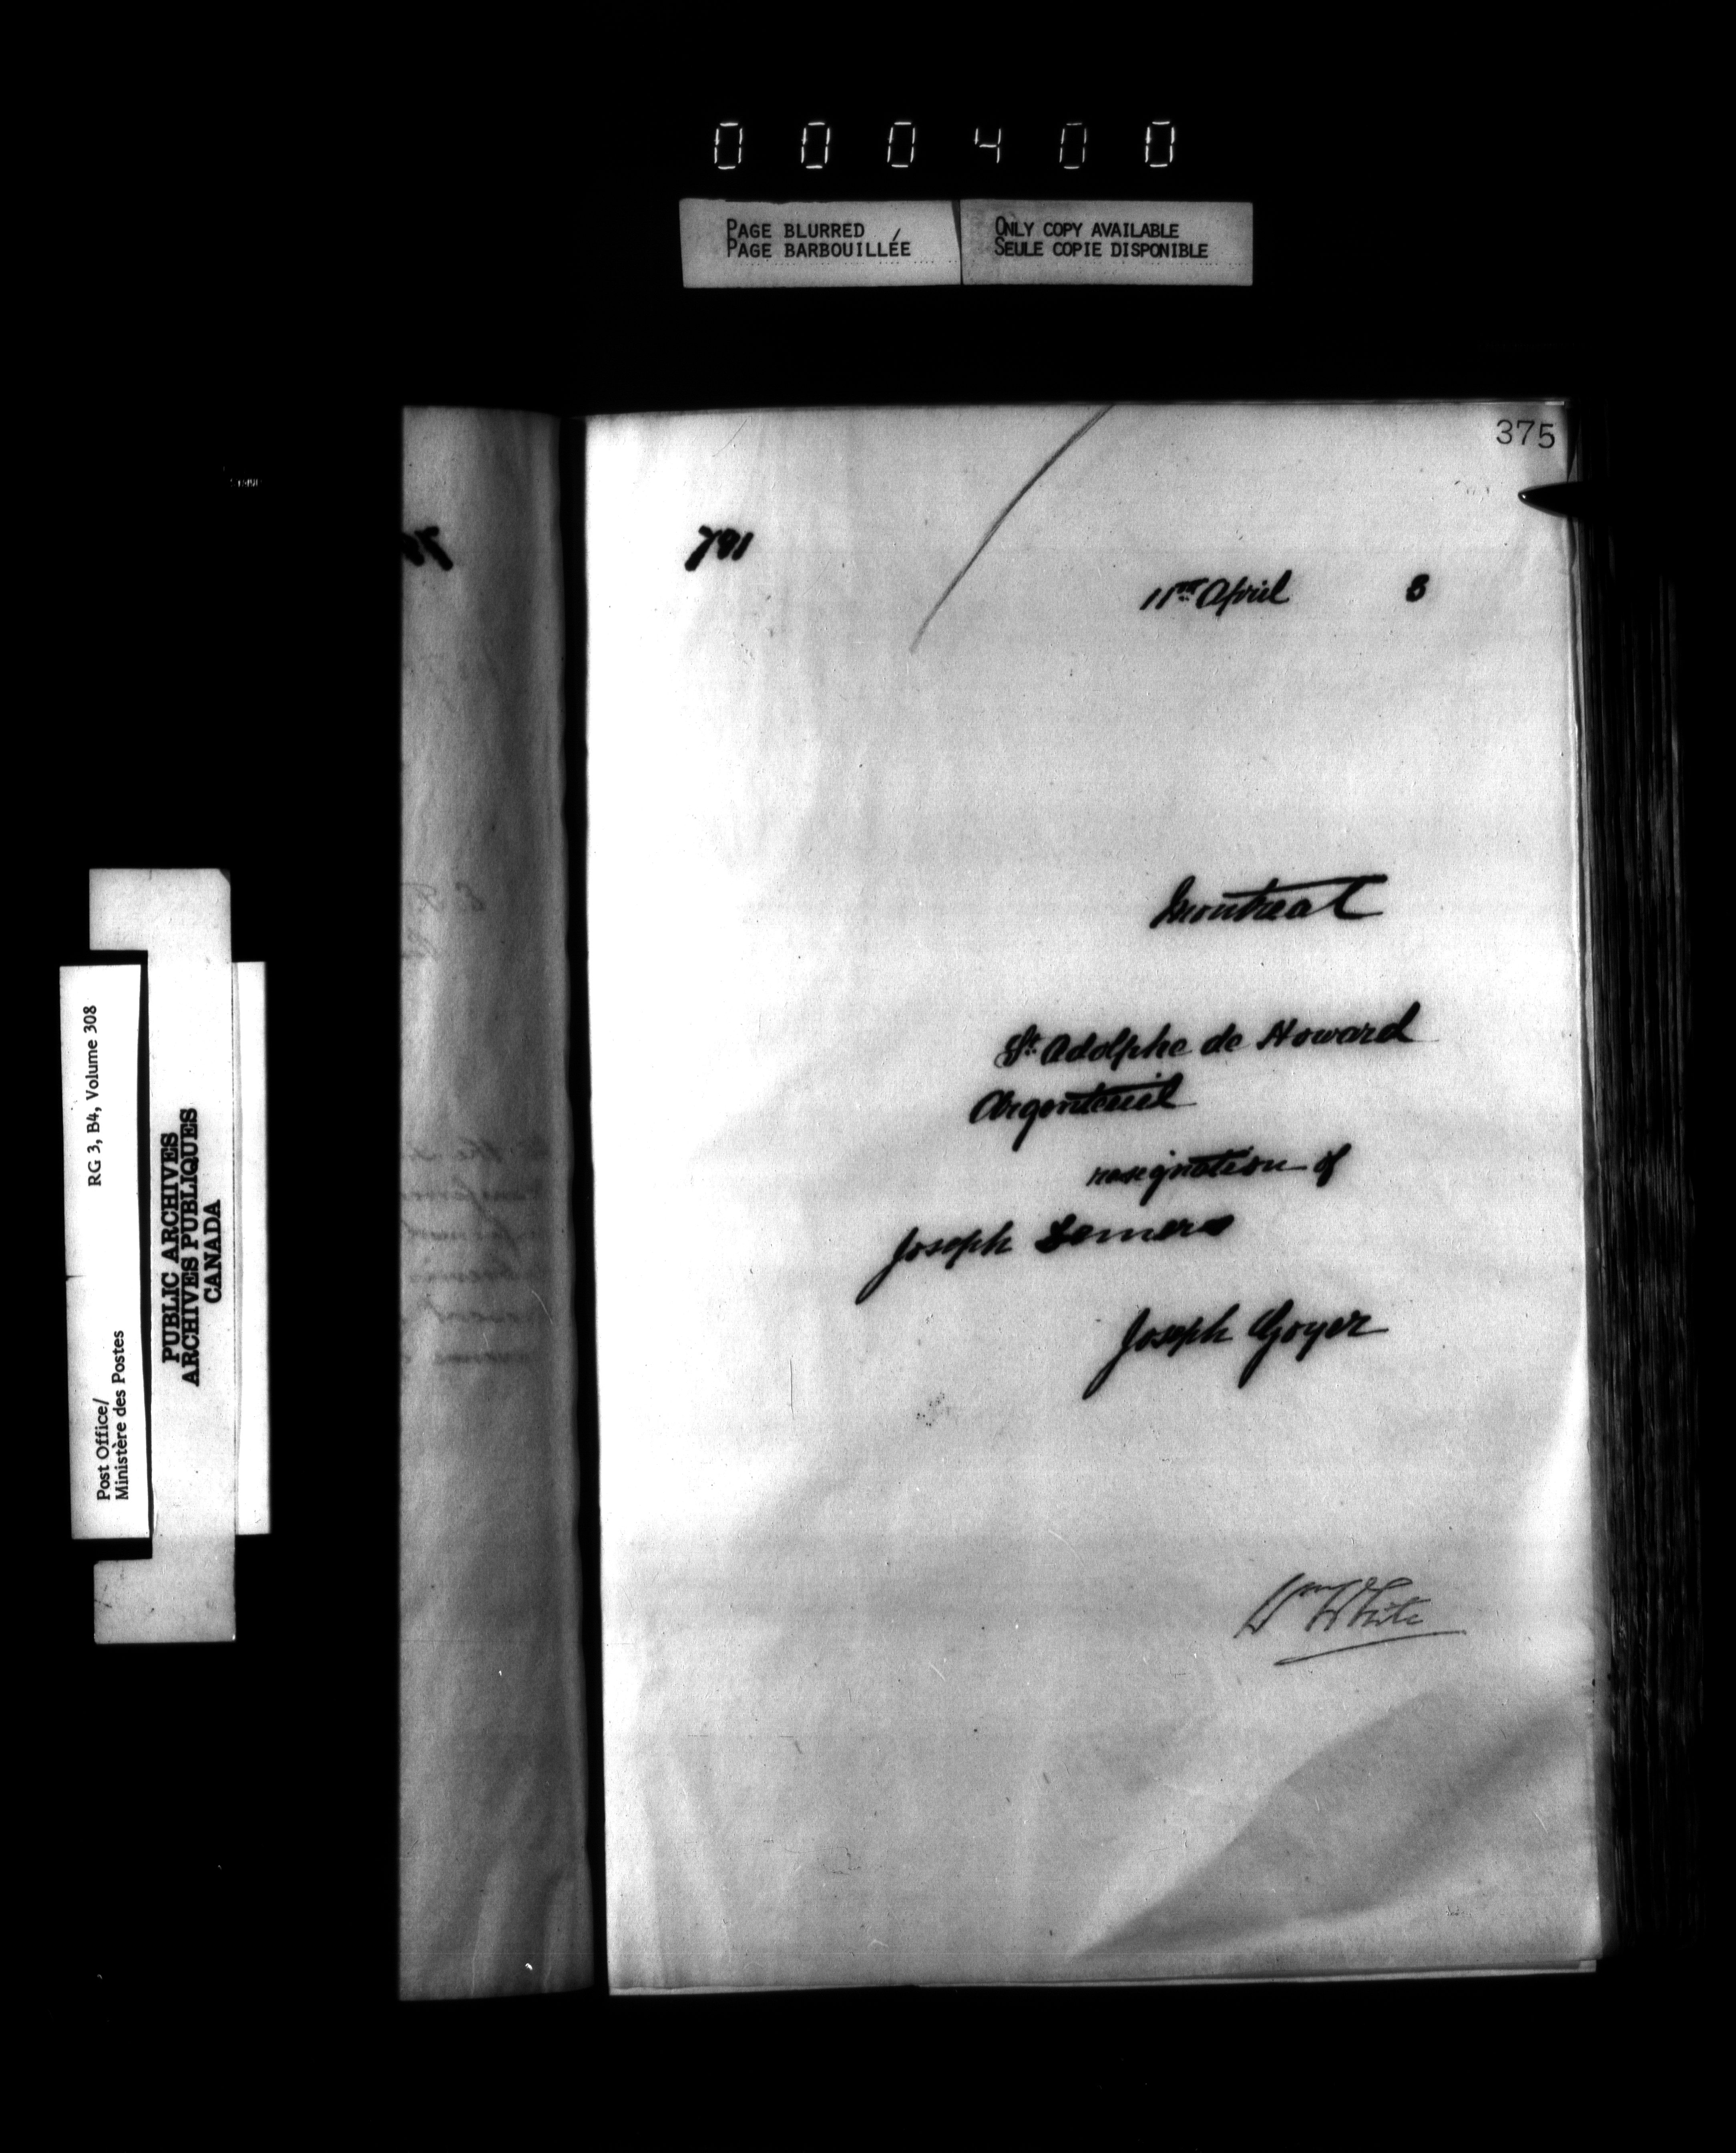 000400
PAGE BLURRED
PAGE BARBOUILLÉE
ONLY COPY AVAILABLE
SEULE COPIE DISPONIBLE
375
791
11th April 3
Montreal
St. Adolphe de Howard
Argenteuil
resignation of
Joseph
Joseph Goyer
Wm White
RG 3, B4, Volume 308
Post Office/
Ministère des Postes
PUBLIC ARCHIVES
ARCHIVES PUBLIQUES
CANADA